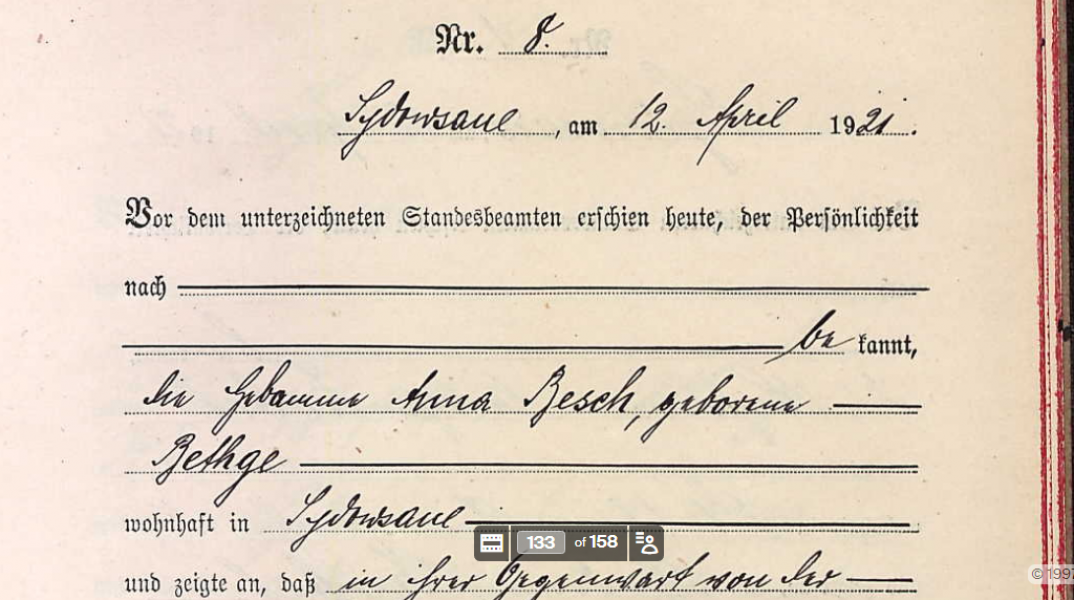 Nr. 8.
Sydowsaue, am 12. April 1921.
Vor dem unterzeichneten Standesbeamten erschien heute, der Persönlichkeit
nach
be kannt,
die Hebamme Anna Besch, geborene
Bethge
wohnhaft in Sydowsaue
und zeigte an, daß in ihrer Gegenwart von der
133 of 158
© 1997